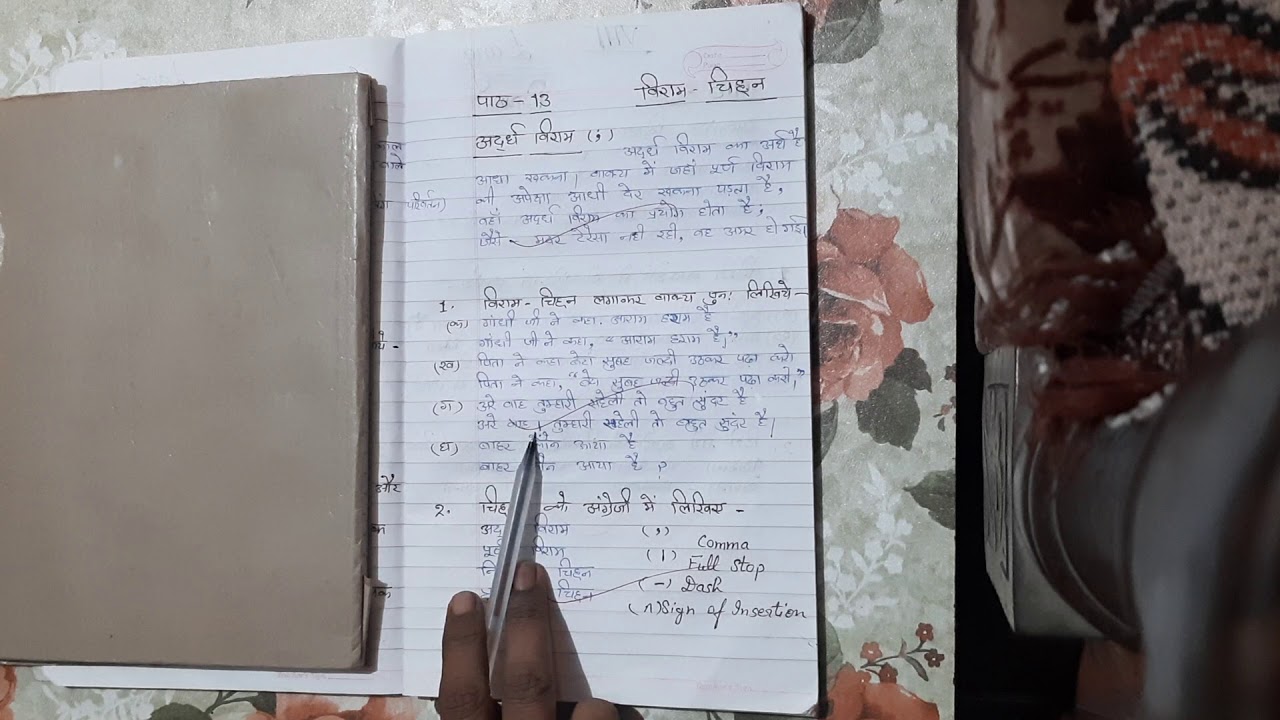 पाठ - 13 विराम - चिह्न
अदर्ध विराम (;)
अदर्ध विराम का अर्थ है
आधा रुकना। वाक्य में जहां पूर्ण विराम
की अपेक्षा आधी देर रुकना पड़ता है,
वहाँ अदर्ध विराम का प्रयोग होता है;
जैसे - मदर टेरेसा नही रही, वह अमर हो गई।
1. विराम - चिह्न लगाकर वाक्य पुनः लिखिये -
(क) गांधी जी ने कहा आराम हराम है
गांधी जी ने कहा, "आराम हराम है।"
(ख) पिता ने कहा बेटा सुबह जल्दी उठकर पढ़ा करो
पिता ने कहा, "बेटा सुबह जल्दी उठकर पढ़ा करो।"
(ग) अरे वाह तुम्हारी सहेली तो बहुत सुंदर है
अरे वाह ! तुम्हारी सहेली तो बहुत सुदंर है।
(घ) बाहर कौन आया है
बाहर आया है ?
2. के अंग्रेजी में लिखिए -
विराम (,) Comma
विराम (।) Full Stop
चिह्न (-) Dash
चिह्न Sign of Insertion
और